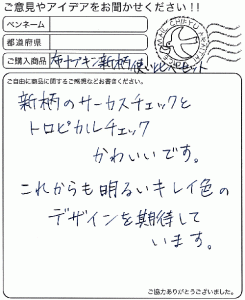 ご意見やアイデアをお聞かせください!!
ペンネーム
都道府県
ご購入商品 布ナプキン新柄使い比べセット
ご自由に商品に関するご感想などお書きください。
新柄のサーカスチェックと
トロピカルチェック
かわいいです。
これからも明るいキレイ色の
デザインを期待して
います。
ご協力ありがとうございました。